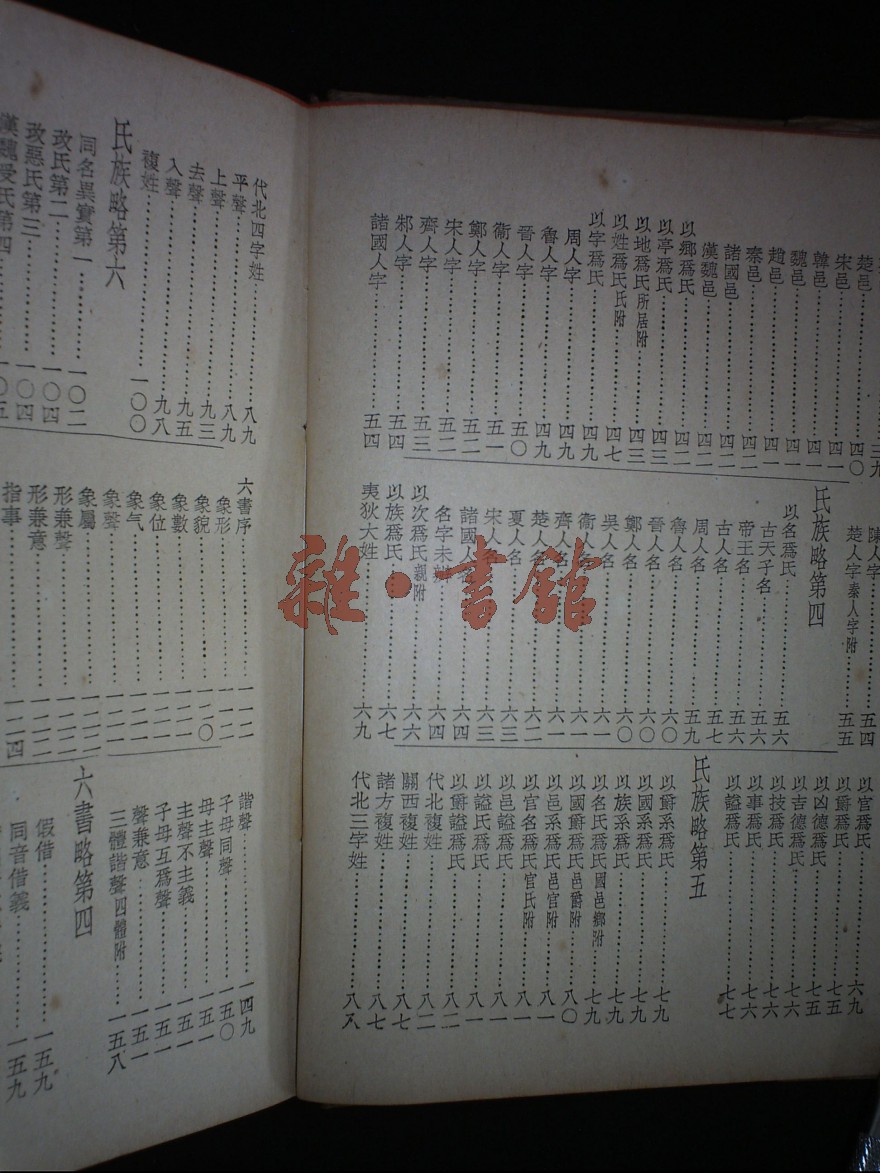 楚邑……四〇
宋邑……四一
韓邑……四一
魏邑……四一
趙邑……四一
秦邑……四二
諸國邑……四二
漢魏邑……四二
以鄉爲氏……四二
以亭爲氏……四三
以地爲氏所居附……四三
以姓爲氏氏附……四七
以字爲氏……四九
周人字……四九
魯人字……四九
晉人字……五〇
衞人字……五一
鄭人字……五二
宋人字……五二
齊人字……五三
邾人字……五四
諸國人字……五四
陳人字……五四
楚人字秦人字附……五五
氏族略第四
以名爲氏……五六
古天子名……五六
帝王名……五六
古人名……五七
周人名……五九
魯人名……五九
晉人名……六〇
鄭人名……六〇
吳人名……六一
衞人名……六一
齊人名……六一
楚人名……六二
夏人名……六三
宋人名……六三
諸國人名……六四
名字未辨……六四
以次爲氏親附……六六
以族爲氏……六七
夷狄大姓……六九
以官爲氏……六九
以爵爲氏……七五
以凶德爲氏……七六
以吉德爲氏……七六
以技爲氏……七六
以事爲氏……七六
以諡爲氏……七七
氏族略第五
以爵系爲氏……七九
以國系爲氏……七九
以族系爲氏……七九
以名氏爲氏國邑鄉附……七九
以國爵爲氏邑爵附……八〇
以邑系爲氏邑官附……八一
以官名爲氏官氏附……八一
以邑諡爲氏……八一
以諡氏爲氏……八一
以爵諡爲氏……八二
代北複姓……八二
關西複姓……八七
諸方複姓……八七
代北三字姓……八八
代北四字姓……八九
平聲……八九
上聲……九三
去聲……九五
入聲……九八
複姓……一〇〇
氏族略第六
同名異實第一……一〇二
改氏第二……一〇四
改惡氏第三……一〇四
漢魏受氏第四……一〇五
六書序……一一二
象形……一一二
象貌……一二〇
象數……一二一
象位……一二一
象气……一二一
象聲……一二一
象屬……一二二
形兼聲……一二二
形兼意……一二二
指事……一二四
諧聲……一四九
子母同聲……一五〇
母主聲……一五一
主聲不主義……一五一
子母互爲聲……一五一
聲兼意……一五一
三體諧聲四體附……一五八
六書略第四
假借……一五九
同音借義……一五九
雜·書館